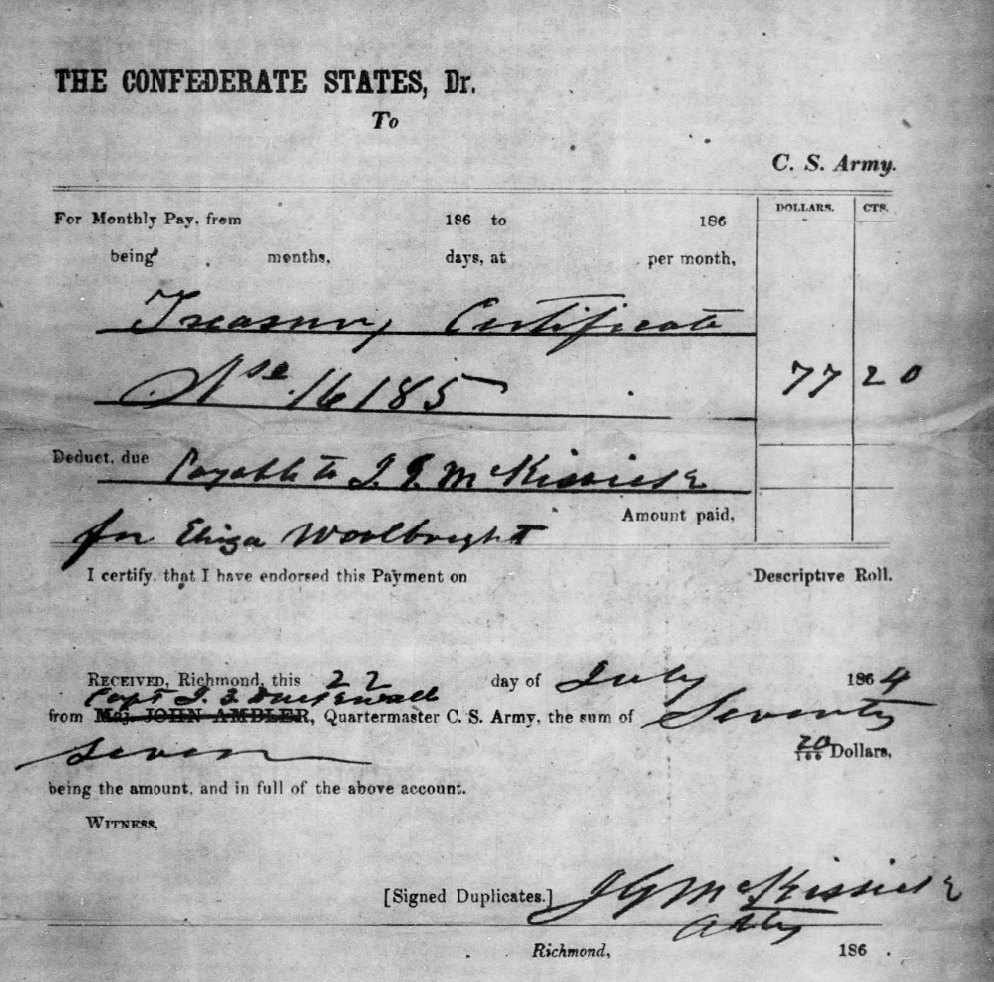 THE CONFEDERATE STATES, Dr.
To
C. S. Army.
DOLLARS. CTS.
For Monthly Pay, from 186 to 186
being months, days, at per month,
Treasury Certificate
No. 16185 77 20
Deduct, due Payable to J. G. McKissick
Amount paid,
for Eliza Woolbright
I certify, that I have endorsed this Payment on Descriptive Roll.
RECEIVED, Richmond, this 22 day of July 1864
Capt
from Maj. JOHN AMBLER, Quartermaster C. S. Army, the sum of Seventy
seven 20/100 Dollars,
being the amount, and in full of the above account.
WITNESS,
[Signed Duplicates.] J G McKissick
Atty
Richmond, 186 .